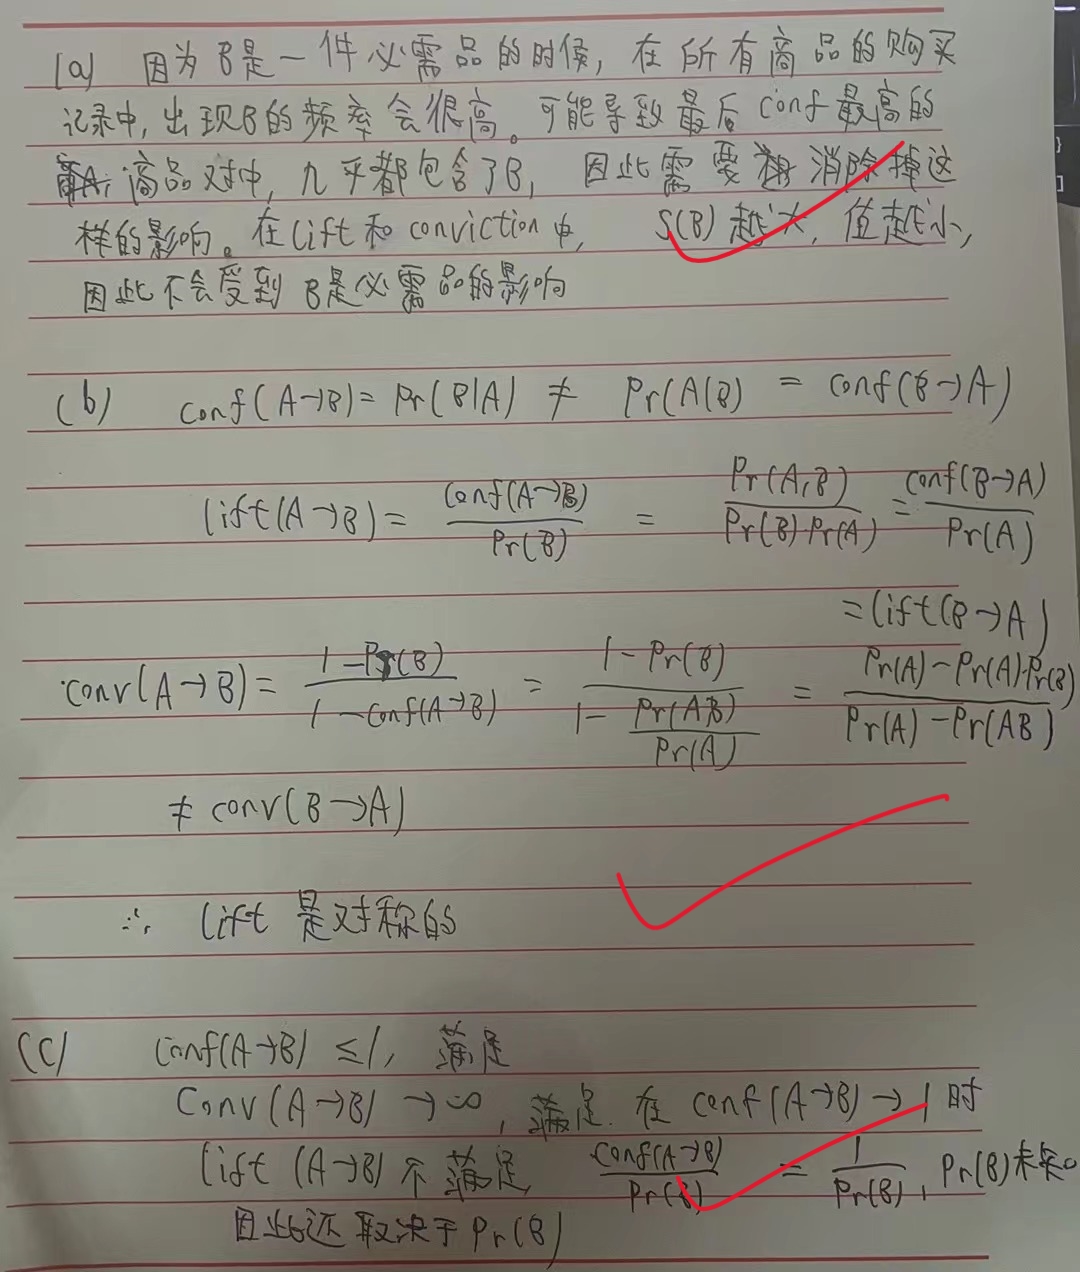 (a) 因为B是一件必需品的时候, 在所有商品的购买
记录中, 出现B的频率会很高。可能导致最后conf最高的
商品对中, 几乎都包含了B, 因此需要 消除掉这
样的影响。在lift和conviction中, S(B)越大, 值越小,
因此不会受到B是必需品的影响
(b) conf(A→B)= Pr(B|A) ≠ Pr(A|B) = conf(B→A)
lift(A→B) = \frac{conf(A→B)}{Pr(B)} = \frac{Pr(A,B)}{Pr(B)·Pr(A)} = \frac{conf(B→A)}{Pr(A)}
= lift(B→A)
conv(A→B) = \frac{1-Pr(B)}{1-conf(A→B)} = \frac{1-Pr(B)}{1-\frac{Pr(AB)}{Pr(A)}} = \frac{Pr(A)-Pr(A)·Pr(B)}{Pr(A)-Pr(AB)}
≠ conv(B→A)
∴ lift 是对称的
(c) conf(A→B) ≤1, 满足
Conv(A→B) →∞, 满足. 在conf(A→B)→1时
lift(A→B) 不满足, \frac{conf(A→B)}{Pr(B)} = \frac{1}{Pr(B)}, Pr(B)未知
因此还取决于Pr(B)